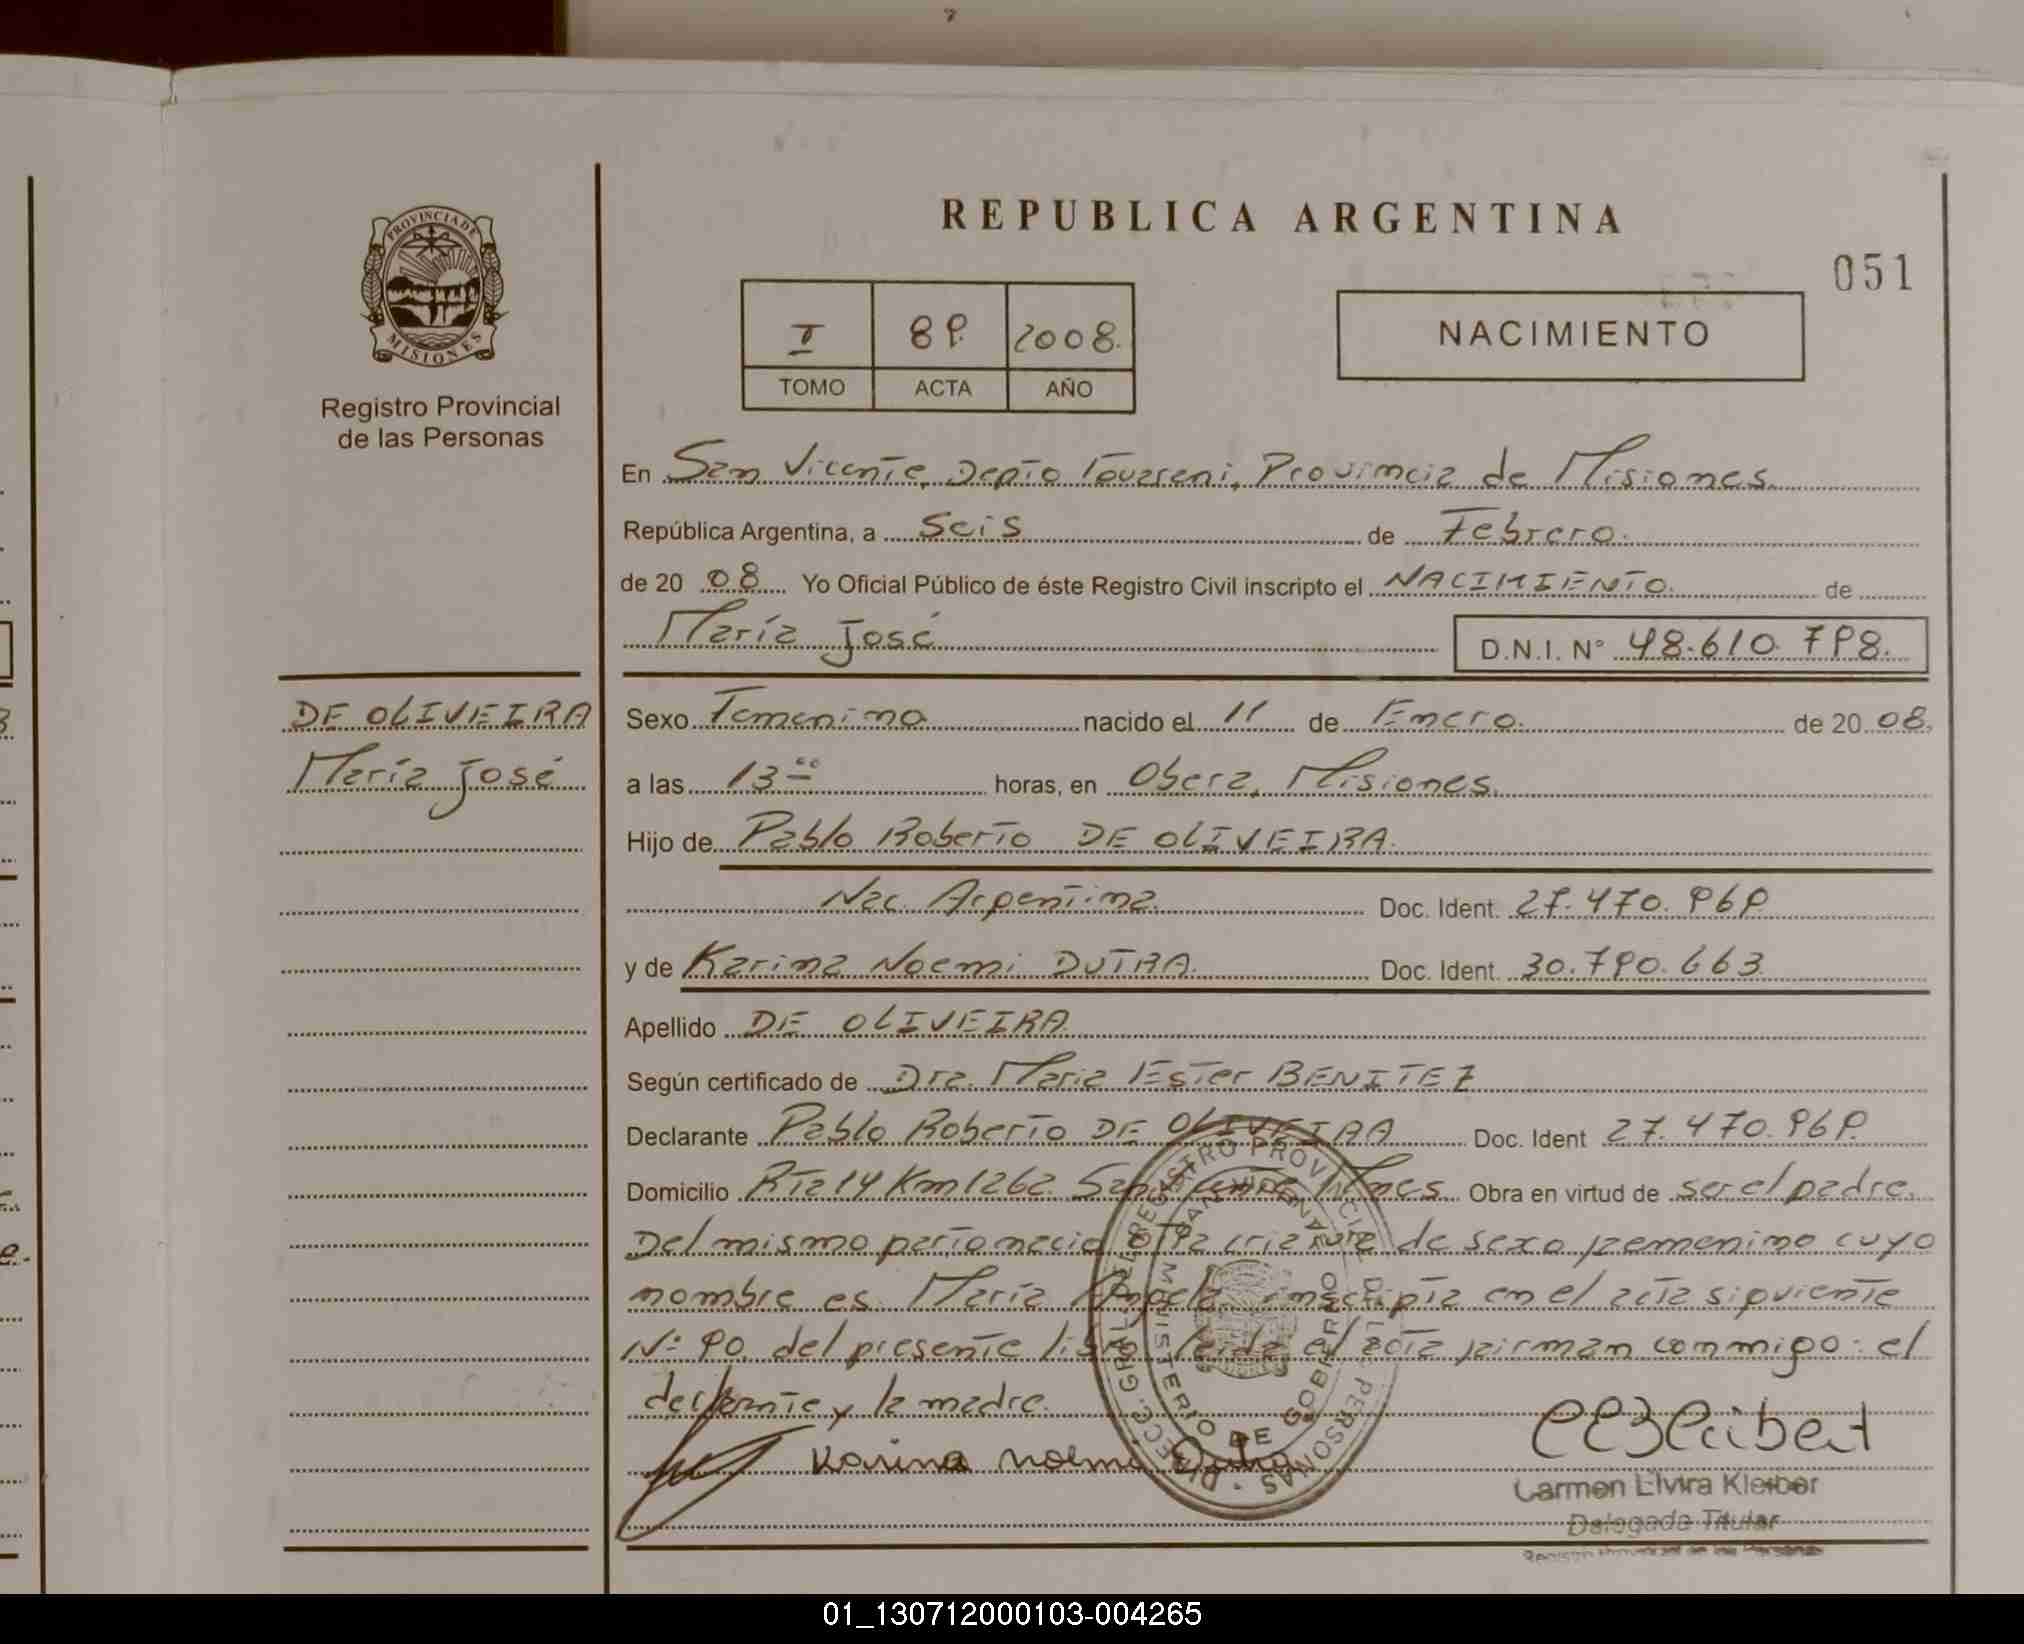 REPUBLICA ARGENTINA
051
PROVINCIA DE MISIONES
Registro Provincial
de las Personas
I 89. 2008.
TOMO ACTA AÑO
NACIMIENTO
En San Vicente, Depto Guarani, Provincia de Misiones.
República Argentina, a Seis de Febrero.
de 20 08. Yo Oficial Público de éste Registro Civil inscripto el NACIMIENTO. de
María José D.N.I. N° 48.610.798.
DE OLIVEIRA
María José
Sexo Femenino nacido el 11 de Enero. de 20 08.
a las 13 00 horas, en Obera, Misiones.
Hijo de Pablo Roberto DE OLIVEIRA.
Nac. Argentina. Doc. Ident. 27.470.969.
y de Karina Noemi DUTRA. Doc. Ident. 30.790.663
Apellido DE OLIVEIRA.
Según certificado de Dra. Maria Ester BENITEZ
Declarante Pablo Roberto DE OLIVEIRA Doc. Ident 27.470.969.
Domicilio Rta 14 Km 1262. San Vicente, Mnes. Obra en virtud de ser el padre.
Del mismo parto nacio otra criatura de sexo femenino cuyo
nombre es María Angela, inscripta en el acta siguiente
N° 90. del presente libro, leida el acta firman conmigo: el
declarante y la madre.
Karina Noemi Dutra
DIRECC. GRAL. DEL REGISTRO PROVINCIAL DE LAS PERSONAS
MINISTERIO DE GOBIERNO
Carmen Elvira Kleiber
Delegada Titular
Registro Provincial de las Personas
01_130712000103-004265